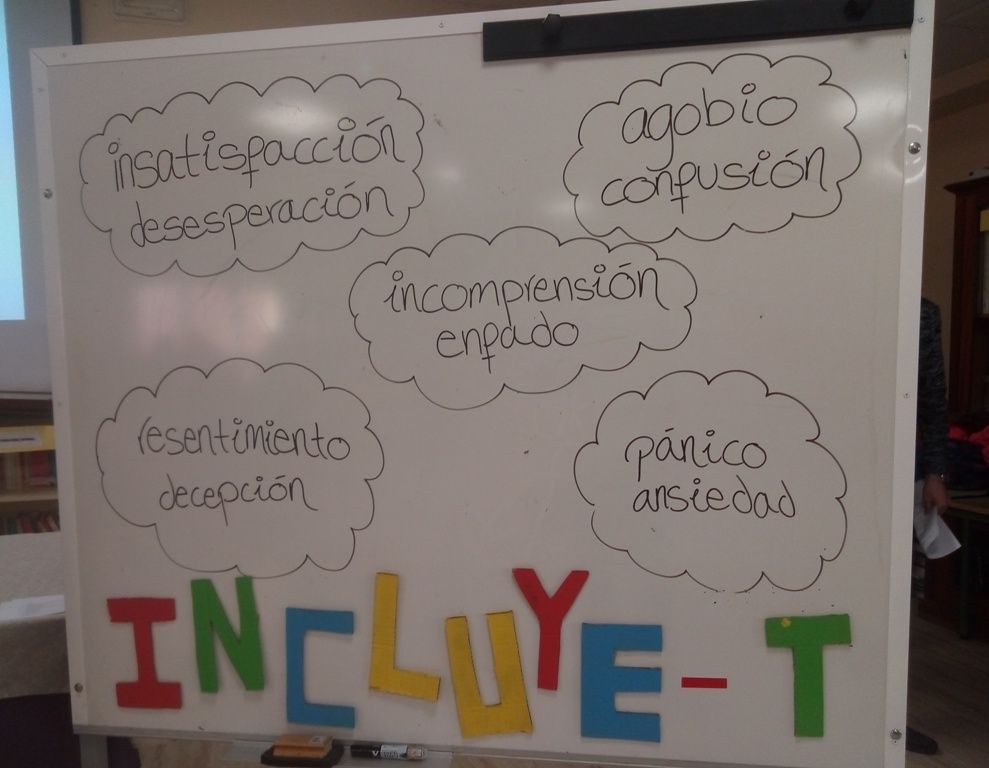 insatisfacción
desesperación
agobio
confusión
incomprensión
enfado
resentimiento
decepción
pánico
ansiedad
INCLUYE-T